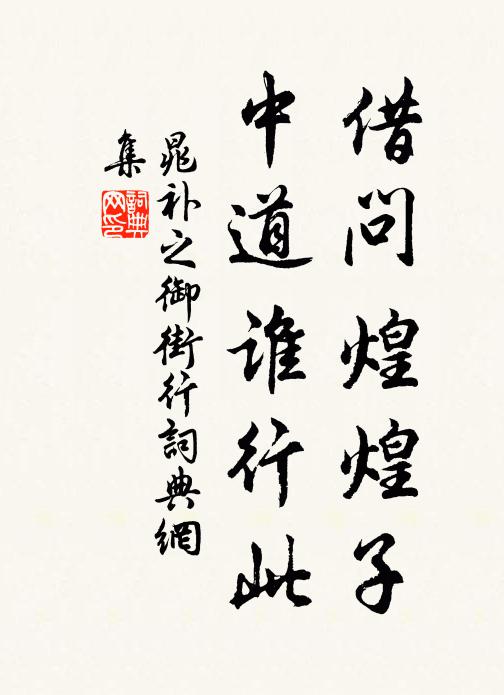 借问煌煌子
中道谁行此
晁补之御街行詞典網
集
詞典
网印